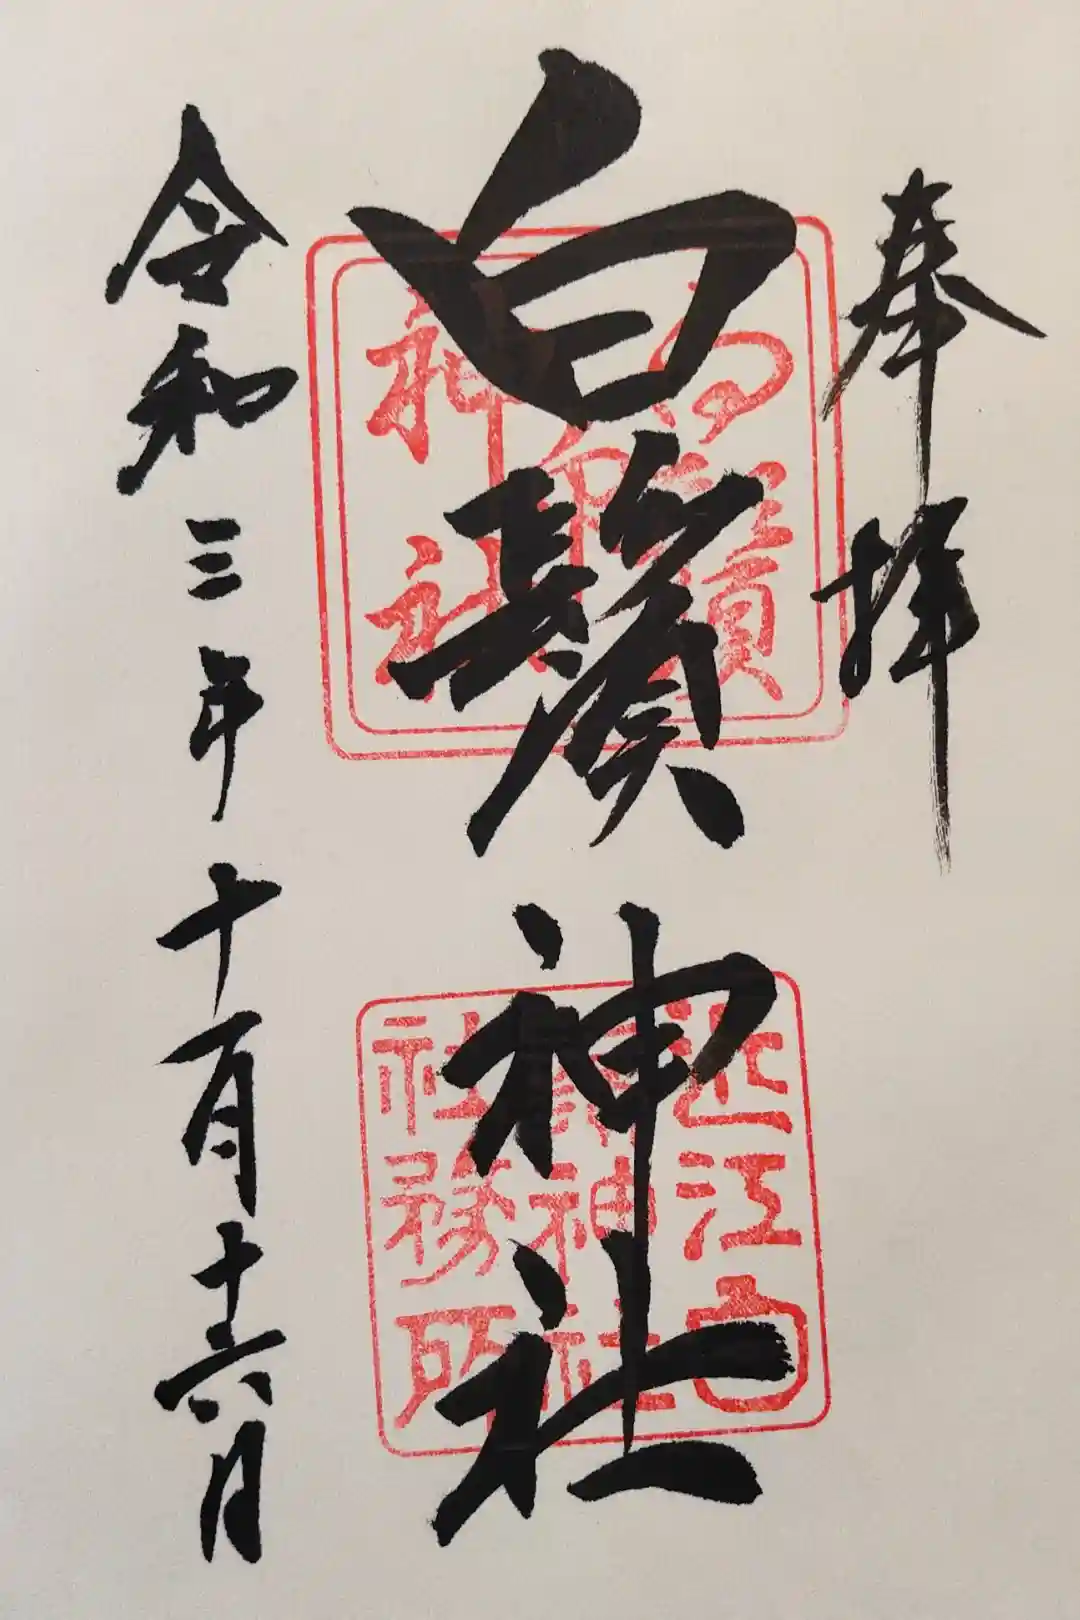 奉拝
白鬚神社
令和三年十一月十六日
近江白
鬚神社
社務所